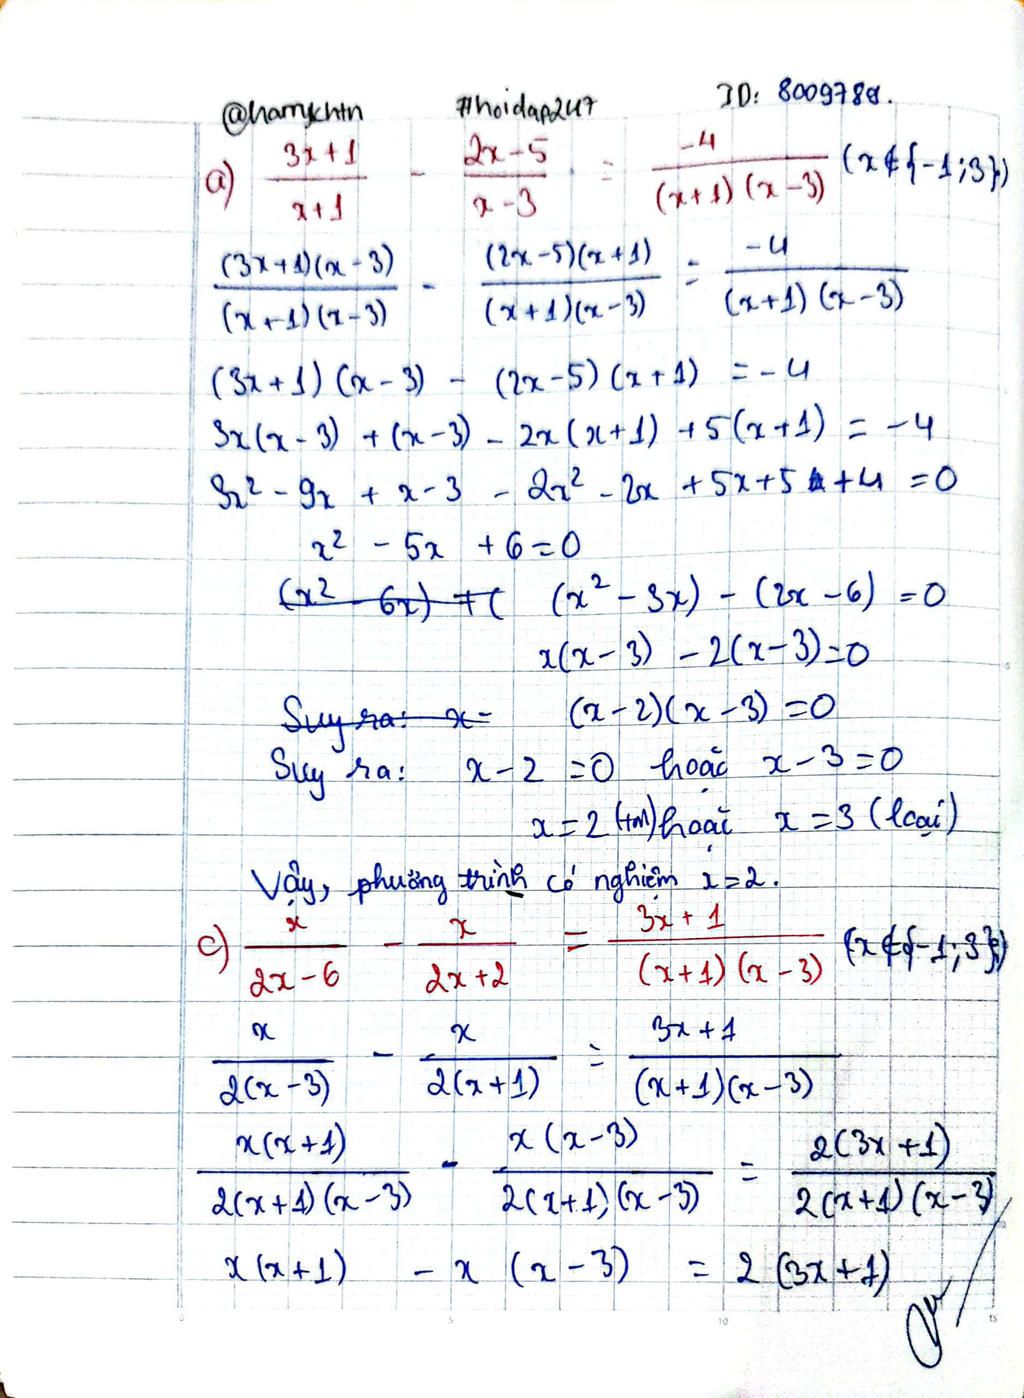 @harrychtn #hoidap247 ID: 8009788.
a) (3x+1)/(x+1) - (2x-5)/(x-3) = -4/((x+1)(x-3)) (x∉{-1;3})
((3x+1)(x-3))/((x+1)(x-3)) - ((2x-5)(x+1))/((x+1)(x-3)) = -4/((x+1)(x-3))
(3x+1)(x-3) - (2x-5)(x+1) = -4
3x(x-3) + (x-3) - 2x(x+1) + 5(x+1) = -4
3x² - 9x + x - 3 - 2x² - 2x + 5x + 5 + 4 = 0
x² - 5x + 6 = 0
(x² - 6x) + ( (x² - 3x) - (2x - 6) = 0
x(x-3) - 2(x-3) = 0
Suy ra: x = (x-2)(x-3) = 0
Suy ra: x-2 = 0 hoặc x-3 = 0
x = 2 (tm) hoặc x = 3 (loại)
Vậy, phương trình có nghiệm x = 2.
c) x/(2x-6) - x/(2x+2) = (3x+1)/((x+1)(x-3)) (x∉{-1;3})
x/(2(x-3)) - x/(2(x+1)) = (3x+1)/((x+1)(x-3))
(x(x+1))/(2(x+1)(x-3)) - (x(x-3))/(2(x+1)(x-3)) = (2(3x+1))/(2(x+1)(x-3))
x(x+1) - x(x-3) = 2(3x+1)
0 5 10 15